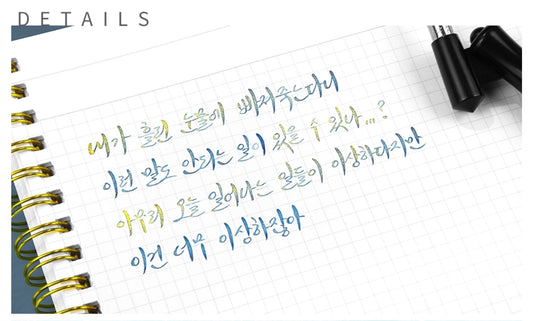 DETAILS
내가 흘린 눈물에 빠져죽는다니
이런 말도 안되는 일이 있을 수 있나...?
아무리 오늘 일어나는 일들이 이상하다지만
이건 너무 이상하잖아